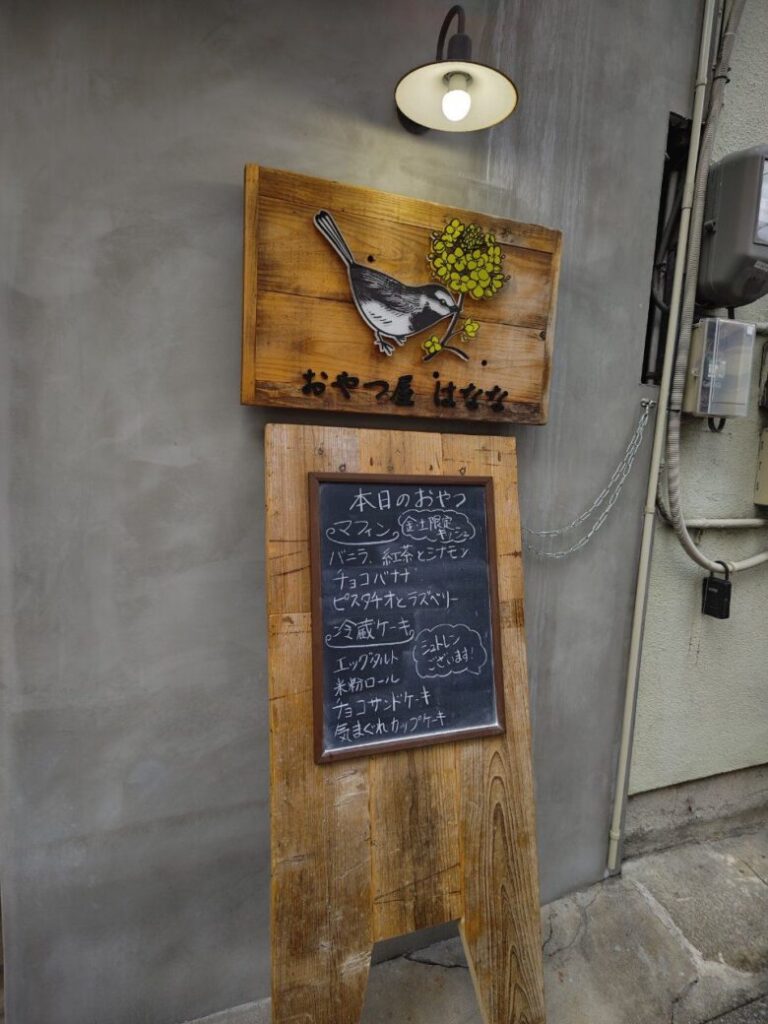 おやつ屋 はなな
本日のおやつ
マフィン
金土限定
キッシュ
バニラ、紅茶とシナモン
チョコバナナ
ピスタチオとラズベリー
冷蔵ケーキ
シュトレン
ございます!
エッグタルト
米粉ロール
チョコサンドケーキ
気まぐれカップケーキ